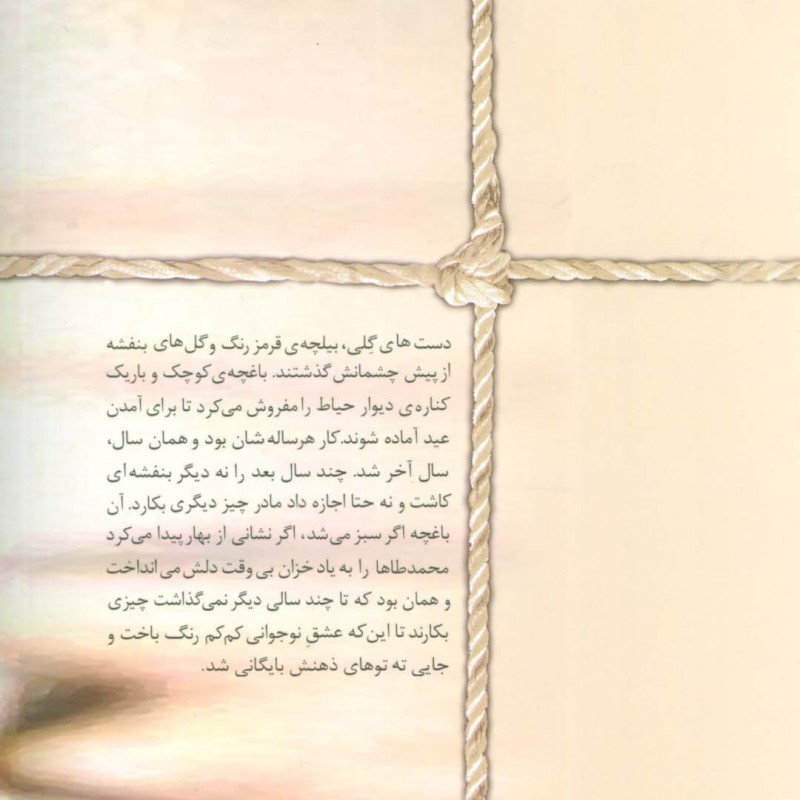 دست های گِلی، بیلچه‌ی قرمز رنگ و گل‌های بنفشه
از پیش چشمانش گذشتند. باغچه‌ی کوچک و باریک
کناره‌ی دیوار حیاط را مفروش می‌کرد تا برای آمدن
عید آماده شوند. کار هرساله شان بود و همان سال،
سال آخر شد. چند سال بعد را نه دیگر بنفشه ای
کاشت و نه حتا اجازه داد مادر چیز دیگری بکارد. آن
باغچه اگر سبز می‌شد، اگر نشانی از بهار پیدا می‌کرد
محمدطاها را به یاد خزان بی وقت دلش می انداخت
و همان بود که تا چند سالی دیگر نمی‌گذاشت چیزی
بکارند تا این‌که عشقِ نوجوانی کم‌کم رنگ باخت و
جایی ته توهای ذهنش بایگانی شد.